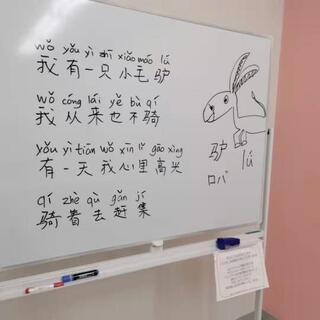 wǒ yǒu yì zhī xiǎo máo lǘ
我有一只小毛驴
wǒ cóng lái yě bù qí
我从来也不骑
yǒu yì tiān wǒ xīn lǐ gāo xìng
有一天我心里高兴
qí zhè qù gǎn jí
骑着去赶集
驴 lǘ
ロバ